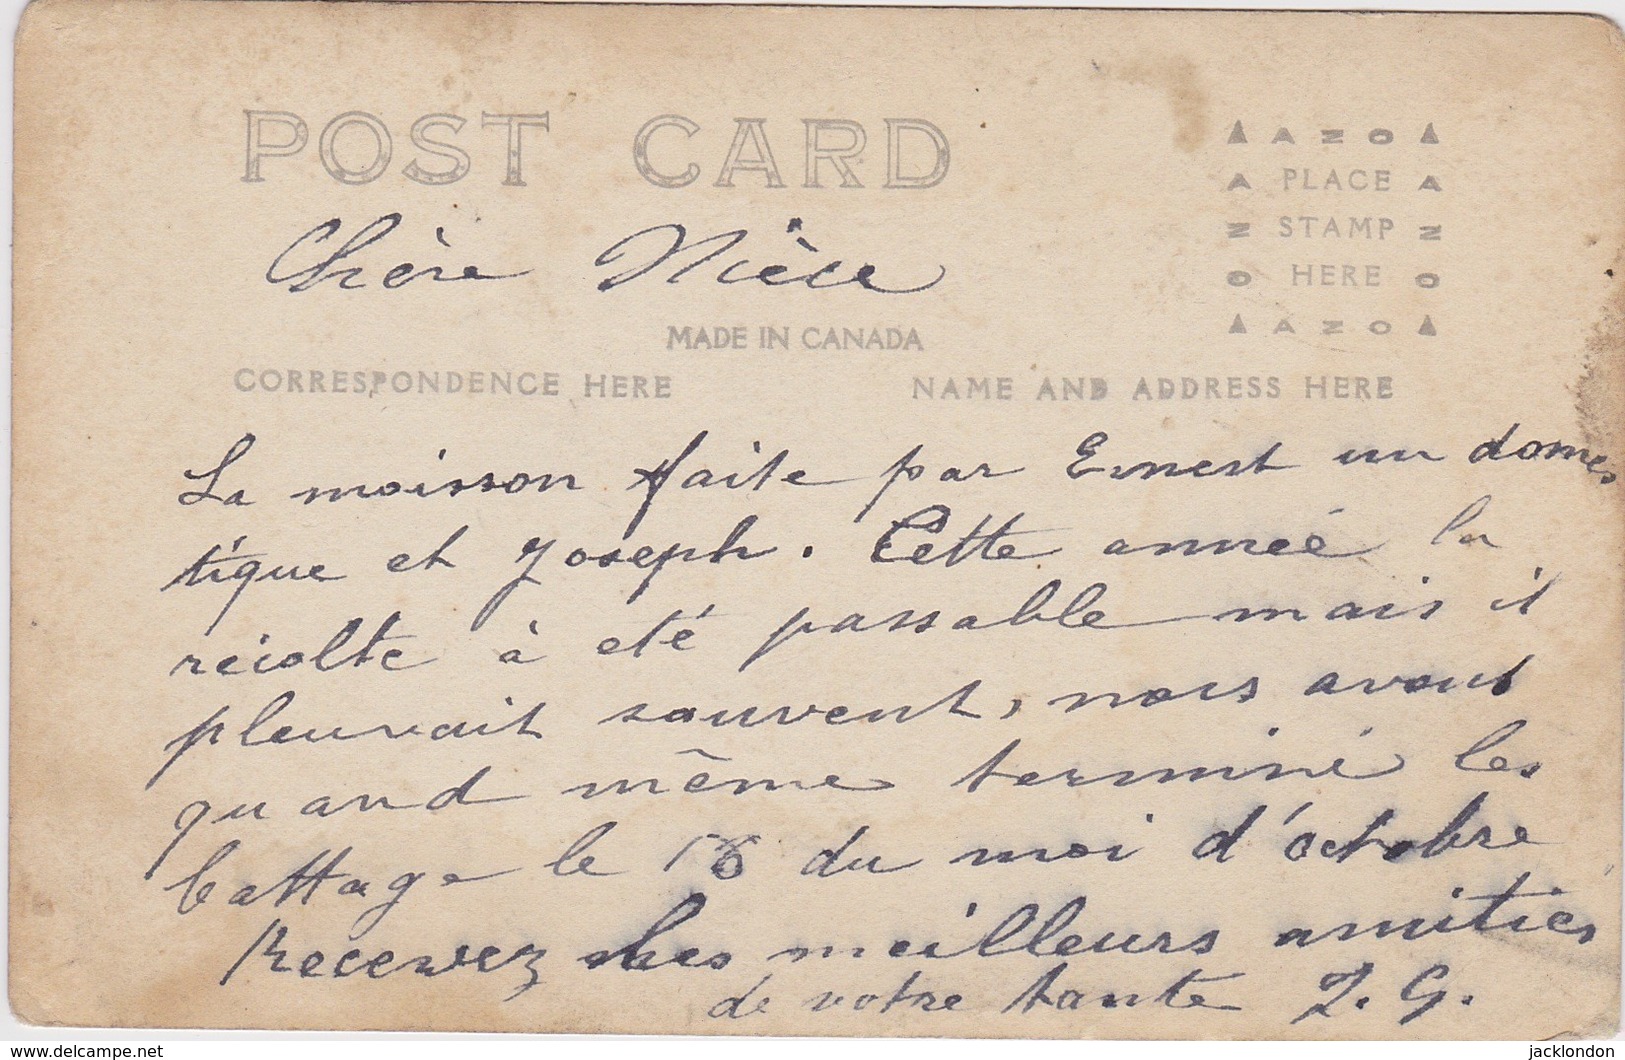 POST CARD
▲ A Z O ▲
A PLACE A
Z STAMP Z
O HERE O
▲ A Z O ▲
Chère Nièce
MADE IN CANADA
CORRESPONDENCE HERE NAME AND ADDRESS HERE
La moisson faite par Ernest un domes
tique et Joseph. Cette année la
récolte à été passable mais il
pleuvait souvent, nous avons
quand même terminé les
battage le 16 du moi d'octobre
Recevez les meilleurs amitiés
de votre tante
delcampe.net
jacklondon